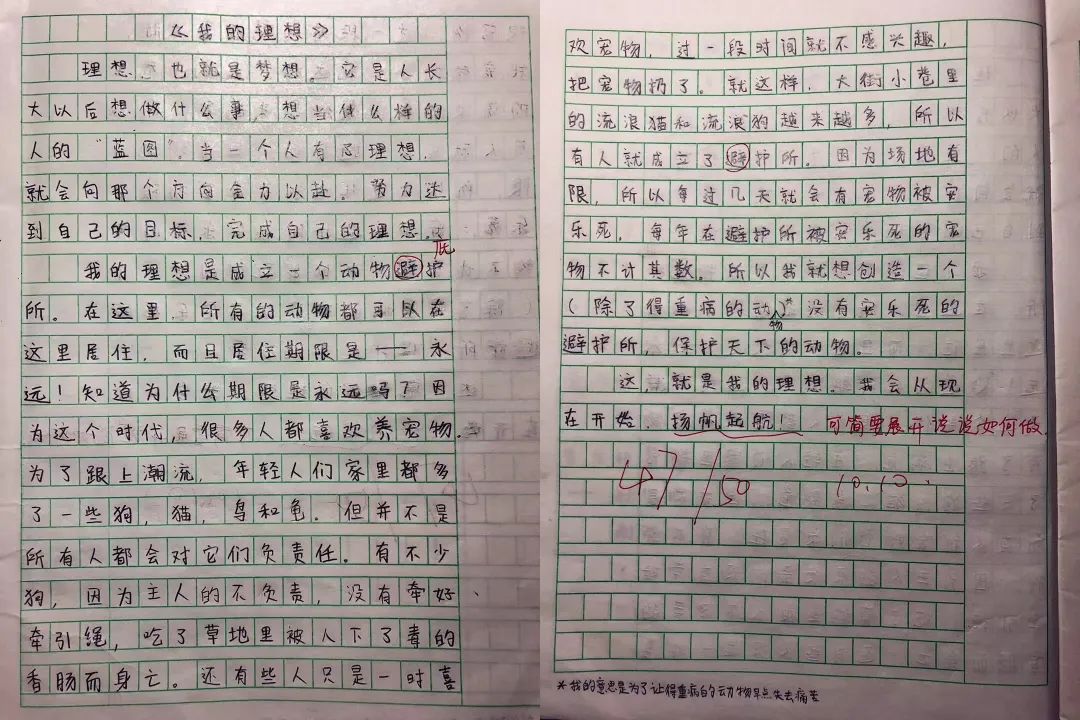 《我的理想》
理想，也就是梦想。它是人长
大以后想做什么事、想当什么样的
人的“蓝图”。当一个人有了理想，
就会向那个方向全力以赴。努力达
到自己的目标，完成自己的理想。
我的理想是成立一个动物避护
庇
所。在这里，所有的动物都可以在
这里居住，而且居住期限是——永
远！知道为什么期限是永远吗？因
为这个时代，很多人都喜欢养宠物。
为了跟上潮流，年轻人们家里都多
了一些狗，猫，鸟和龟。但并不是
所有人都会对它们负责任。有不少
狗，因为主人的不负责，没有牵好
牵引绳，吃了草地里被人下了毒的
香肠而身亡。还有些人只是一时喜
欢宠物，过一段时间就不感兴趣，
把宠物扔了。就这样，大街小巷里
的流浪猫和流浪狗越来越多，所以
有人就成立了避护所。因为场地有
限，所以每过几天就会有宠物被安
乐死，每年在避护所被安乐死的宠
物不计其数，所以我就想创造一个
（除了得重病的动物）*没有安乐死的
避护所，保护天下的动物。
这，就是我的理想。我会从现
在开始，扬帆起航！ 可简要展开说说如何做
47/50 10.12.
*我的意思是为了让得重病的动物早点失去痛苦